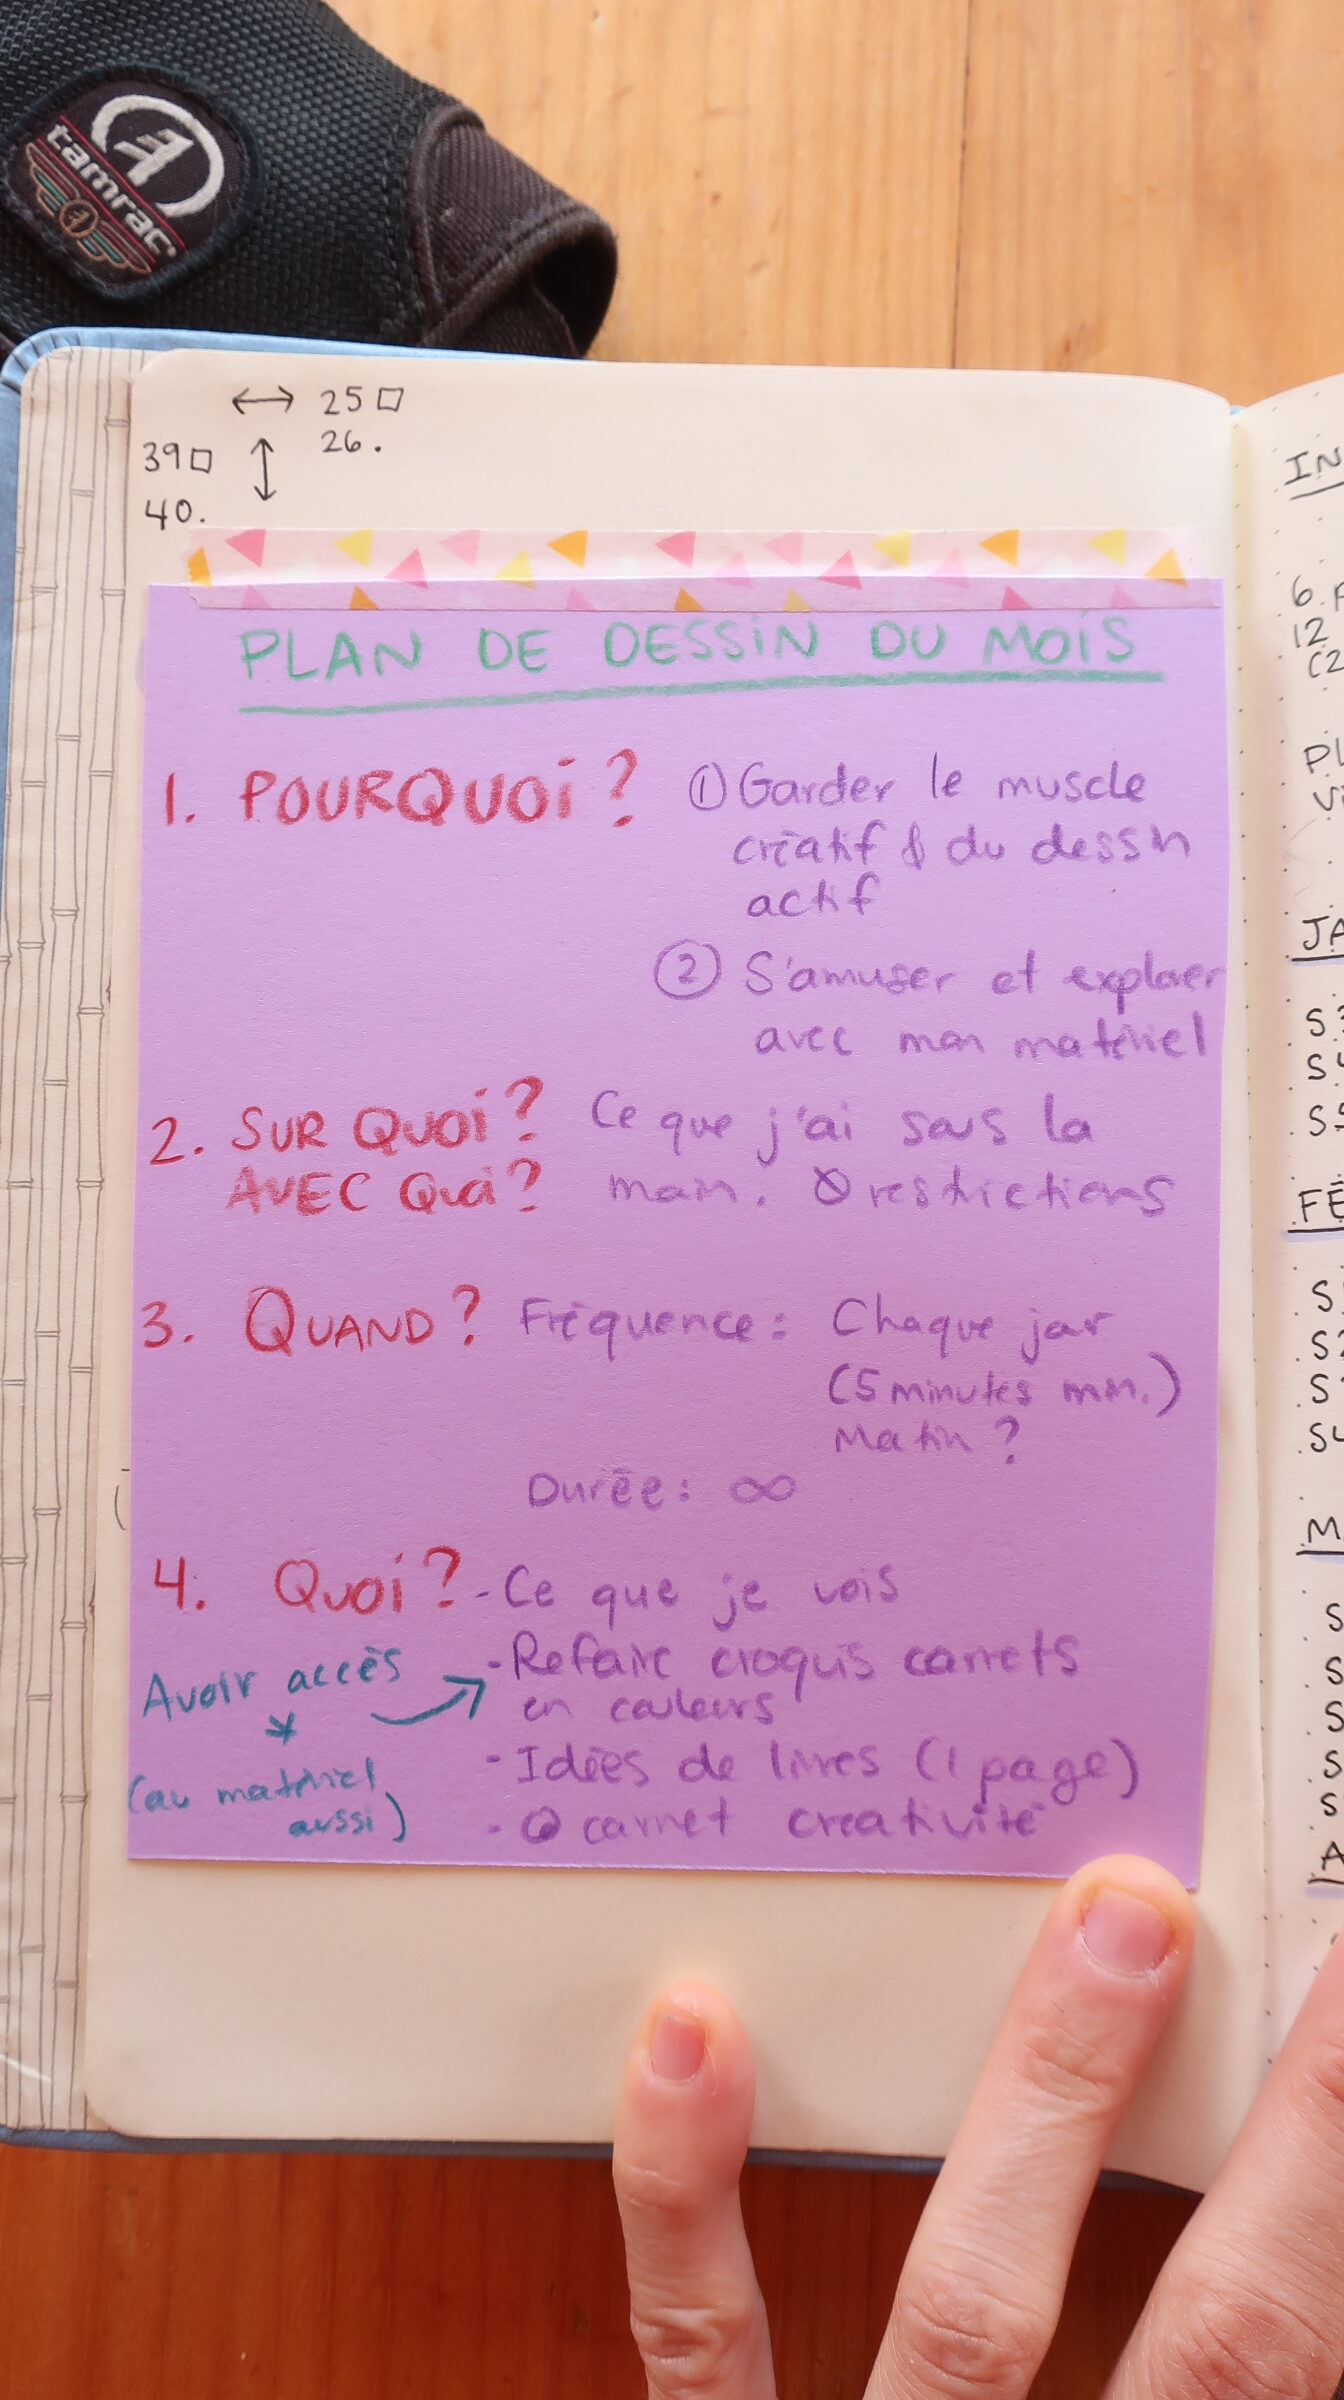 tamrac
↔ 25 □
26.
39 □ ↕
40.
PLAN DE DESSIN DU MOIS
1. POURQUOI ? ① Garder le muscle
créatif & du dessin
actif
② S'amuser et explorer
avec mon matériel
2. SUR QUOI ? Ce que j'ai sous la
AVEC QUOI ? main. Ø restrictions
3. QUAND ? Fréquence : Chaque jour
(5 minutes min.)
Matin ?
Durée : ∞
4. QUOI ? - Ce que je vois
- Refaire croquis carnets
en couleurs
- Idées de livres (1 page)
- carnet créativité
Avoir accès →
*
(au matériel
aussi)
IN
6.
12
(2
PL
JA
S3
S4
S5
FÉ
S
S2
S
S4
M
S
S
S
S
S
A